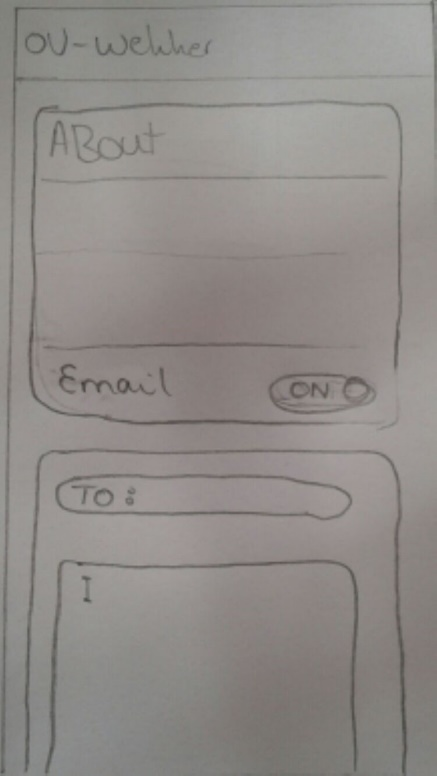 OV-Wekker
ABout
Email
ON
TO:
I